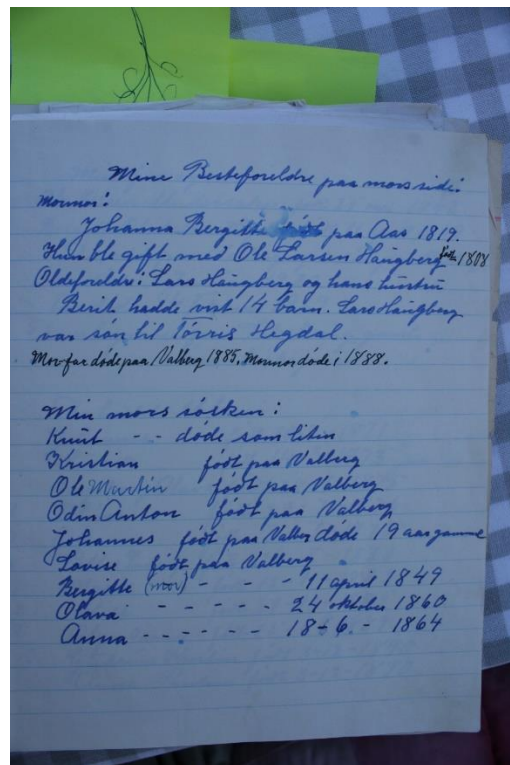 Mine Besteforeldre paa mors side:
Mormor:
Johanna Bergitte født paa Aas 1819.
Hun ble gift med Ole Larsen Haugberg født 1808
Oldeforeldre: Lars Haugberg og hans hustru
Berit hadde vist 14 barn. Lars Haugberg
var søn til Tørris Hegdal.
Morfar døde paa Valberg 1885, Mormor døde i 1888.
Min mors søsken:
Knut - - døde som liten
Kristian født paa Valberg
Ole Martin født paa Valberg
Odin Anton født paa Valberg
Johannes født paa Valber døde 19 aar gammel
Lovise født paa Valberg
Bergitte (mor) - - - 11 april 1849
Olava - - - - - 24 oktober 1860
Anna - - - - - - 18-6.- 1864